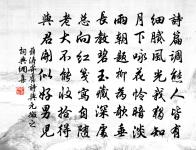 詩篇調態人皆有
細膩風光我獨知
月下咏花怜暗淡
雨朝題柳為欹垂
長教碧玉藏深處
總向紅箋寫自隨
老大不能收拾得
與君開似好男兒
薛濤寄舊詩與元微之
詞典網集